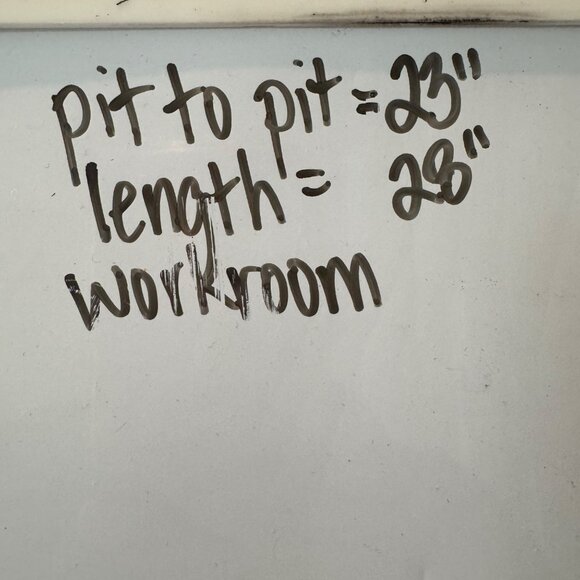 pit to pit = 23"
length = 28"
workroom